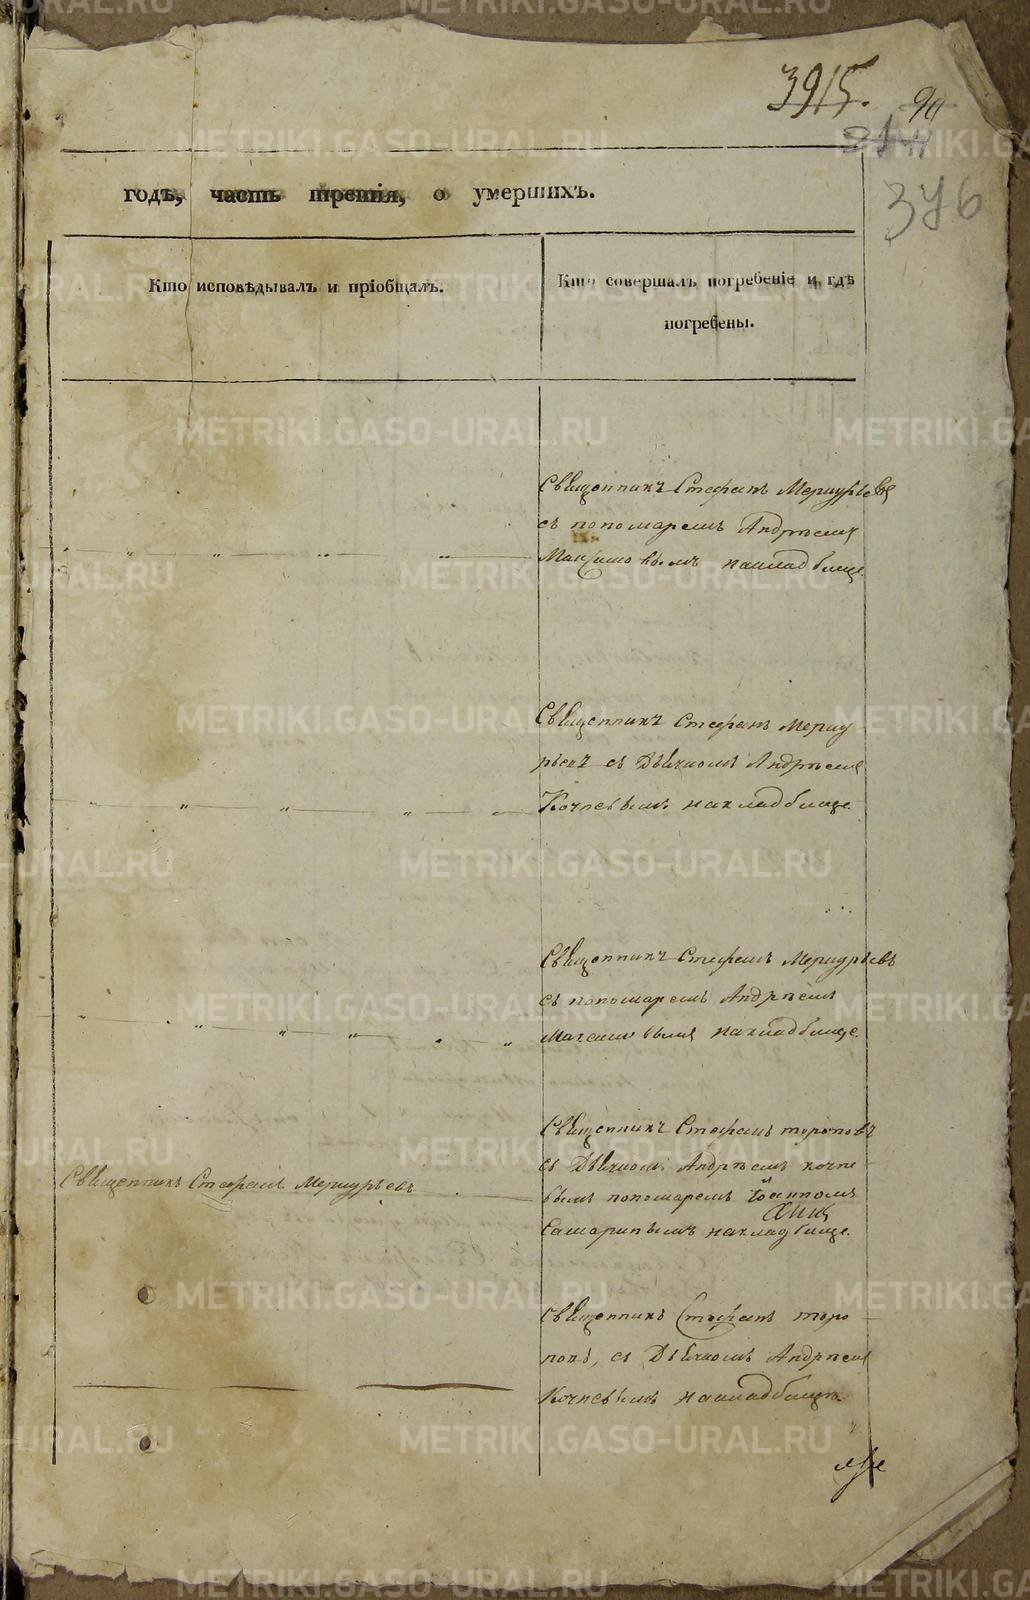 3915.
90
376
годѣ, часть третія, о умершихъ.
Кто исповѣдывалъ и пріобщалъ.
Кто совершалъ погребеніе и гдѣ
погребены.
Священникъ Стефанъ Меркурьевъ
съ пономаремъ Андреемъ
Максимовымъ накладбище.
Священникъ Стефанъ Мерку
рьевъ съ Дьячкомъ Андреемъ
Кочневымъ накладбище.
Священникъ Стефанъ Меркурьевъ
съ пономаремъ Андреемъ
Максимовымъ накладбище.
Священникъ Стефанъ Меркурьевъ
Священникъ Стефанъ топоповъ
съ Дьячкомъ Андреемъ кочне
вымъ пономаремъ Іоанномъ
Самаринымъ накладбище.
Священникъ Стефанъ торо
повъ, съ Дьячкомъ Андреемъ
Кочневымъ накладбище.
METRIKI.GASO-URAL.RU